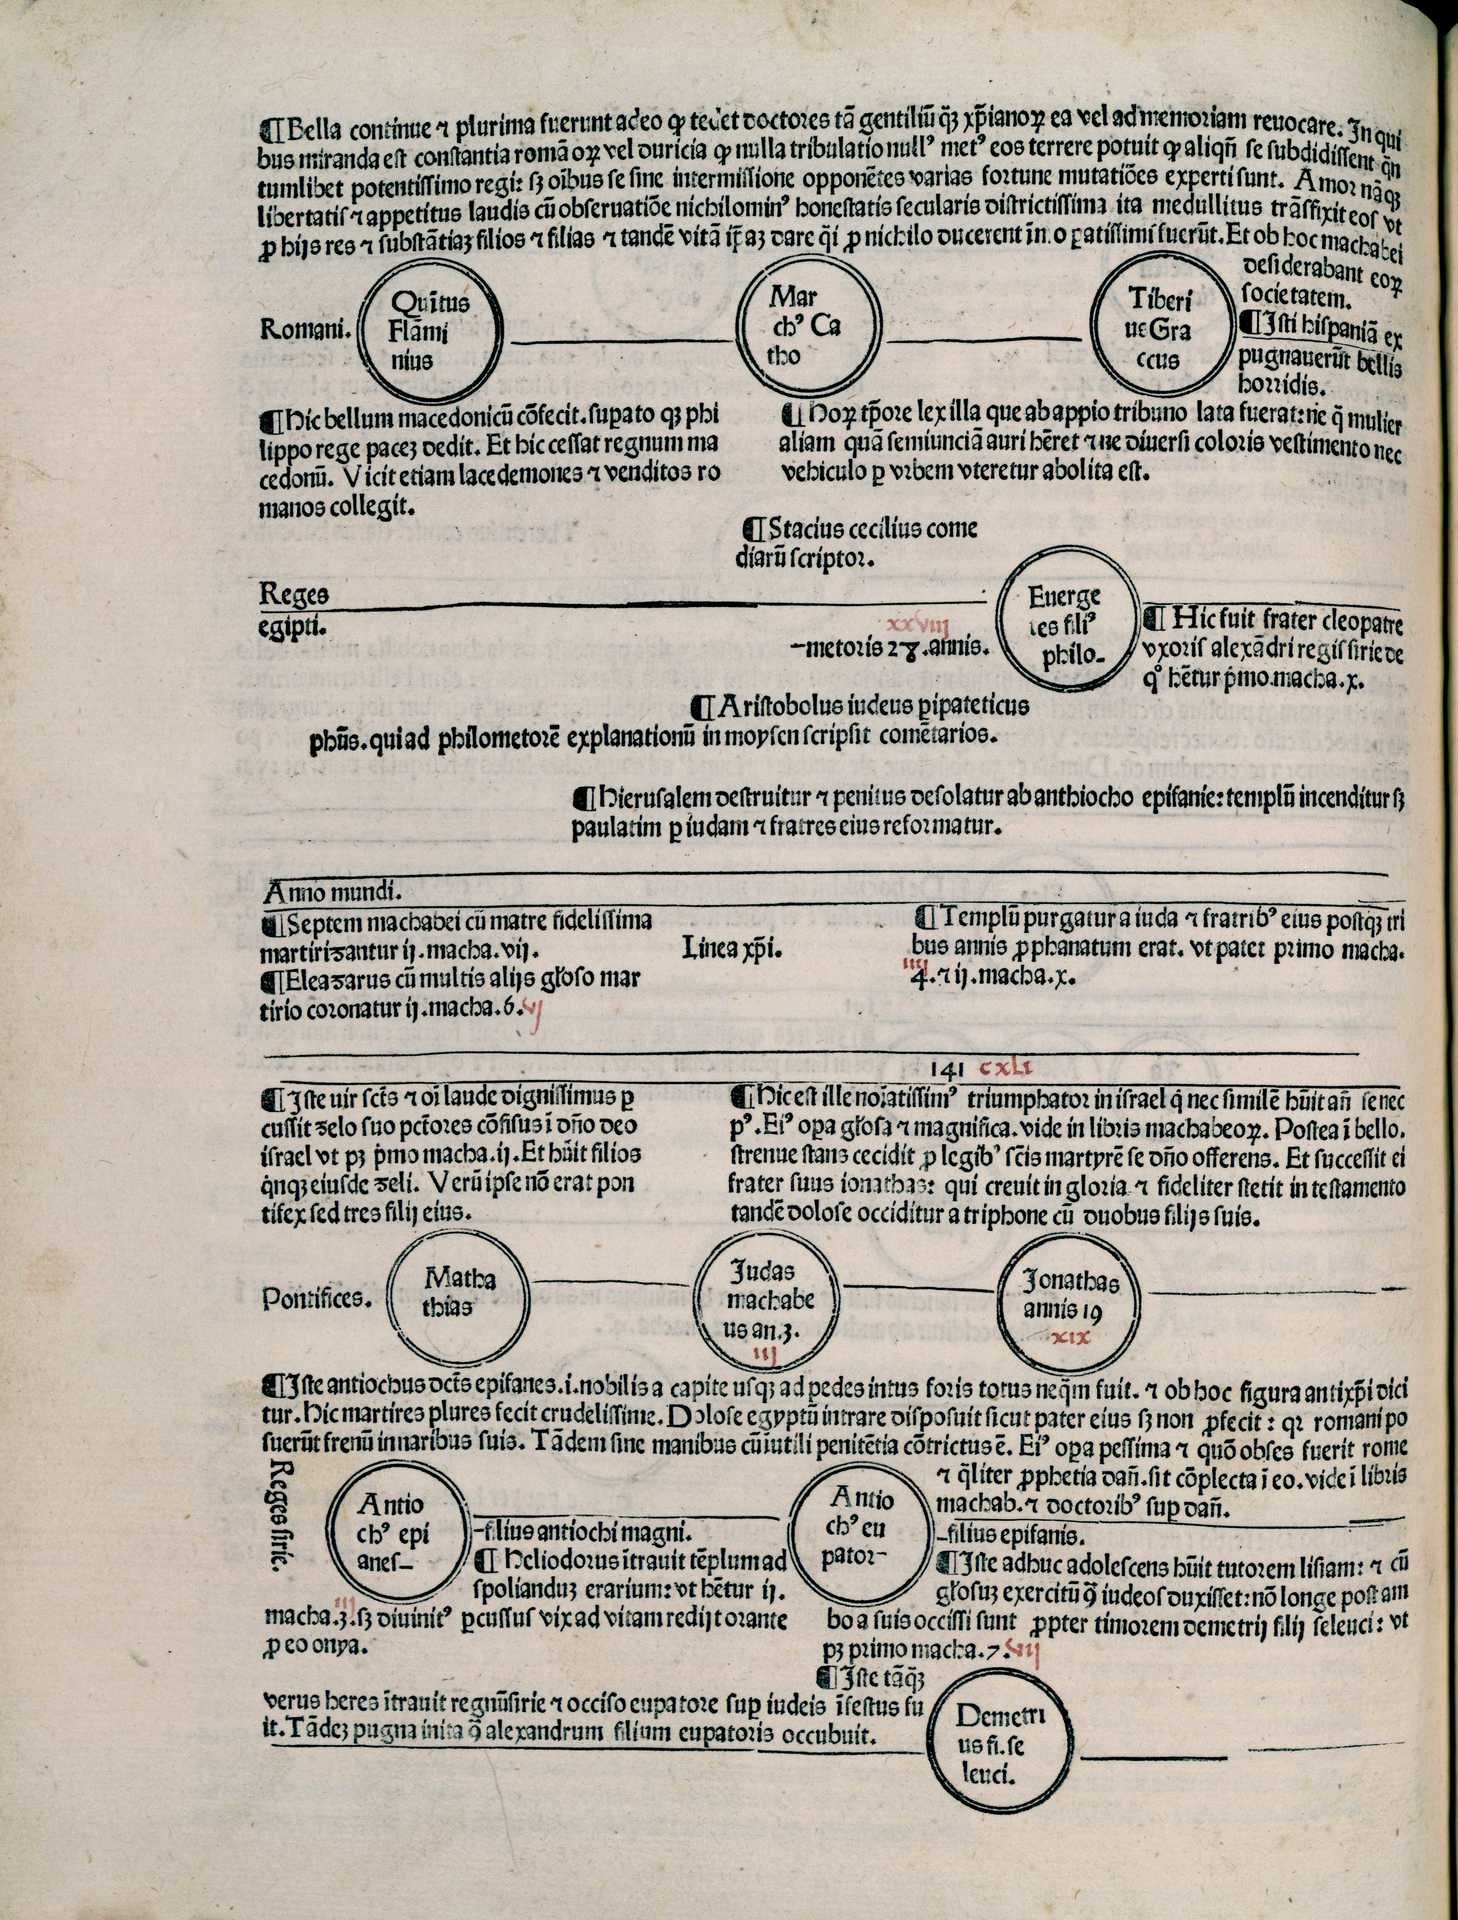 ¶Bella continue ⁊ plurima fuerunt adeo ꝙ tedet doctores tā gentiliū q̄ꝫ xp̄ianoꝝ ea vel ad memoriam reuocare. In qui
bus miranda est constantia romāoꝝ vel duricia ꝙ nulla tribulatio nullꝰ metꝰ eos terrere potuit ꝙ aliqn̄ se subdidissent q̄n
tumlibet potentissimo regi: sꝫ oībus se sine intermissione opponētes varias fortune mutatiōes experti sunt. Amor nāqꝫ
libertatis ⁊ appetitus laudis cū obseruatiōe nichilominꝰ honestatis secularis districtissima ita medullitus trāsfixit eos vt
ꝓ hijs res ⁊ substātiaꝫ filios ⁊ filias ⁊ tandē vitā ip̄aꝫ dare q̄i ꝓ nichilo ducerent in o ꝑatissimi fuerūt. Et ob hoc machabei
desiderabant eoꝝ
societatem.
Romani.
Quītus
Flāmi
nius
Mar
chꝰ Ca
tho
Tiberi
ue Gra
ccus
¶Isti hispaniā ex
pugnauerūt bellis
horridis.
¶Hic bellum macedonicū cōfecit. suꝑato qꝫ phi
lippo rege paceꝫ dedit. Et hic cessat regnum ma
cedonū. Vicit etiam lacedemones ⁊ venditos ro
manos collegit.
¶Hoꝝ tp̄ore lex illa que ab appio tribuno lata fuerat: ne q̄ mulier
aliam quā semiunciā auri hēret ⁊ ne diuersi coloris vestimento nec
vehiculo ꝑ vrbem vteretur abolita est.
¶Stacius cecilius come
diarū scriptor.
Reges
egipti.
Euerge
tes filiꝰ
philo-
xxviij
-metoris 28.annis.
¶Hic fuit frater cleopatre
vxoris alexādri regis sirie de
qͦ hētur p̄mo.macha.x.
¶Aristobolus iudeus ꝑipateticus
phūs.qui ad philometorē explanationū in moysen scripsit comētarios.
¶Hierusalem destruitur ⁊ penitus desolatur ab anthiocho epifanie: templū incenditur sꝫ
paulatim ꝑ iudam ⁊ fratres eius reformatur.
Anno mundi.
¶Septem machabei cū matre fidelissima
martirizantur ij.macha.vij.
¶Eleazarus cū multis alijs gl̄oso mar
tirio coronatur ij.macha.6.vj
Linea xp̄i.
¶Templū purgatur a iuda ⁊ fratribꝰ eius postqꝫ tri
bus annis ꝓphanatum erat. vt patet primo macha.
iiij
4.⁊ ij.macha.x.
141 cxli
¶Iste uir sct̄s ⁊ oī laude dignissimus ꝑ
cussit zelo suo pct̄ores cōfisus ī dn̄o deo
israel vt pꝫ p̄mo macha.ij. Et hūit filios
q̇nqꝫ eiusde zeli. Verū ipse nō erat pon
tifex sed tres filij eius.
¶Hic est ille noīatissimꝰ triumphator in israel q̇ nec similē hūit an̄ se nec
pꝰ. Eiꝰ oꝑa gl̄osa ⁊ magnifica. vide in libris machabeoꝝ. Postea ī bello.
strenue stans cecidit ꝓ legibꝰ sc̄is martyrē se dn̄o offerens. Et successit ei
frater suus ionathas: qui creuit in gloria ⁊ fideliter stetit in testamento
tandē dolose occiditur a triphone cū duobus filijs suis.
Pontifices.
Matha
thias
Judas
machabe
us an.3.
iij
Jonathas
annis 19
xix
¶Iste antiochus dct̄s epifanes.i.nobilis a capite usqꝫ ad pedes intus foris totus neq̄m fuit. ⁊ ob hoc figura antixp̄i dici
tur. Hic martires plures fecit crudelissime. Dolose egyptū intrare disposuit sicut pater eius sꝫ non ꝓfecit: qꝛ romani po
suerūt frenū in naribus suis. Tādem sine manibus cū iutili penitētia cōtrictus ē. Eiꝰ oꝑa pessima ⁊ quō obses fuerit rome
⁊ q̄liter ꝓphetia dan̄. sit cōplecta ī eo. vide ī libris
machab.⁊ doctoribꝰ suꝑ dan̄.
Reges sirie.
Antio
chꝰ epi
anes-
-filius antiochi magni.
¶Heliodorus ītrauit tēplum ad
spolianduꝫ erarium: vt hētur ij.
iij
macha.3. sꝫ diuinitꝰ ꝑcussus vix ad vitam redijt orante
ꝓ eo onya.
Antio
chꝰ eu
pator-
-filius epifanis.
¶Iste adhuc adolescens hūit tutorem lisiam: ⁊ cū
gl̄osuꝫ exercitū ꝯ̄ iudeos duxisset: nō longe post am
bo a suis occissi sunt ꝓpter timorem demetrij filij seleuci: vt
pꝫ primo macha.7.vij
¶Iste tāq̄ꝫ
verus heres ītrauit regnū sirie ⁊ occiso eupatore suꝑ iudeis īfestus fu
it. Tādeꝫ pugna inita ꝯ̄ alexandrum filium eupatoris occubuit.
Demetri
us fi. se
leuci.